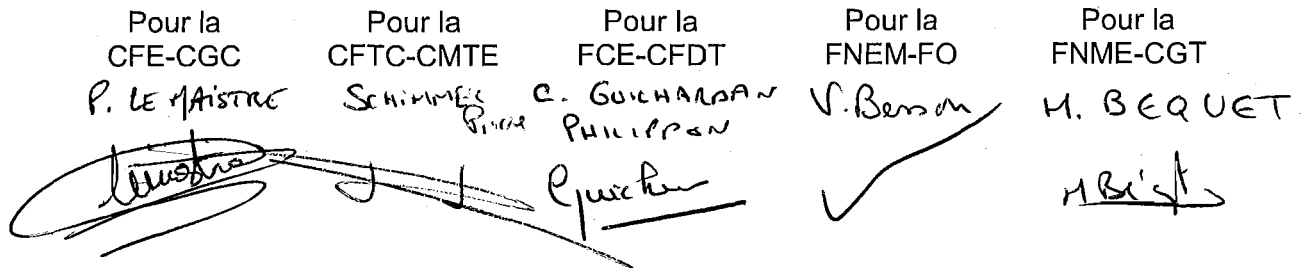 Pour la
CFE-CGC
P. LE MAISTRE
Pour la
CFTC-CMTE
SCHIMMEL
Pierre
Pour la
FCE-CFDT
C. GUICHARDAN
PHILIPPON
Pour la
FNEM-FO
V. Besson
Pour la
FNME-CGT
M. BEQUET